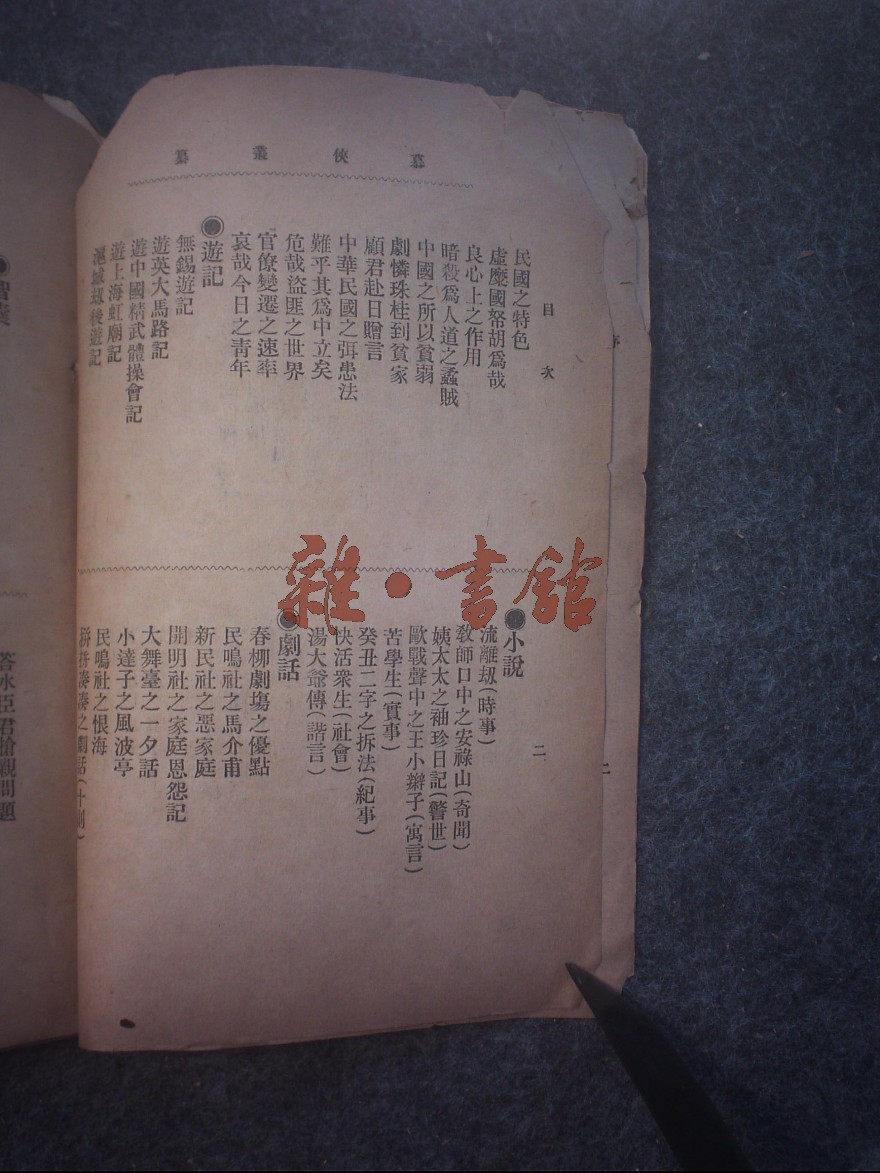 慕俠叢纂
目次
民國之特色
虛麼國帑胡爲哉
良心上之作用
暗殺爲人道之蟊賊
中國之所以貧弱
劇憐珠桂到貧家
顧君赴日贈言
中華民國之弭患法
難乎其爲中立矣
危哉盜匪之世界
官僚變遷之速率
哀哉今日之靑年
◉遊記
無錫遊記
遊英大馬路記
遊中國精武體操會記
遊上海虹廟記
滬城刼後遊記
二
◉小說
流離刼(時事)
敎師口中之安祿山(奇聞)
姨太太之袖珍日記(警世)
歐戰聲中之王小辮子(寓言)
苦學生(實事)
癸丑二字之拆法(紀事)
快活衆生(社會)
湯大爺傳(諧言)
◉劇話
春柳劇塲之優點
民鳴社之馬介甫
新民社之惡家庭
開明社之家庭恩怨記
大舞臺之一夕話
小達子之風波亭
民鳴社之恨海
拼拼湊湊之劇話(十則)
雜·書館
序
二
答冰臣君搶親問題